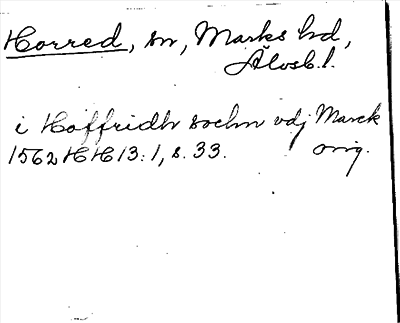 Horred, sn, Marks hd,
Älvsb.l.
i Hoffridh sochn vdj Marck
1562 HH 13:1, s. 33. orig.